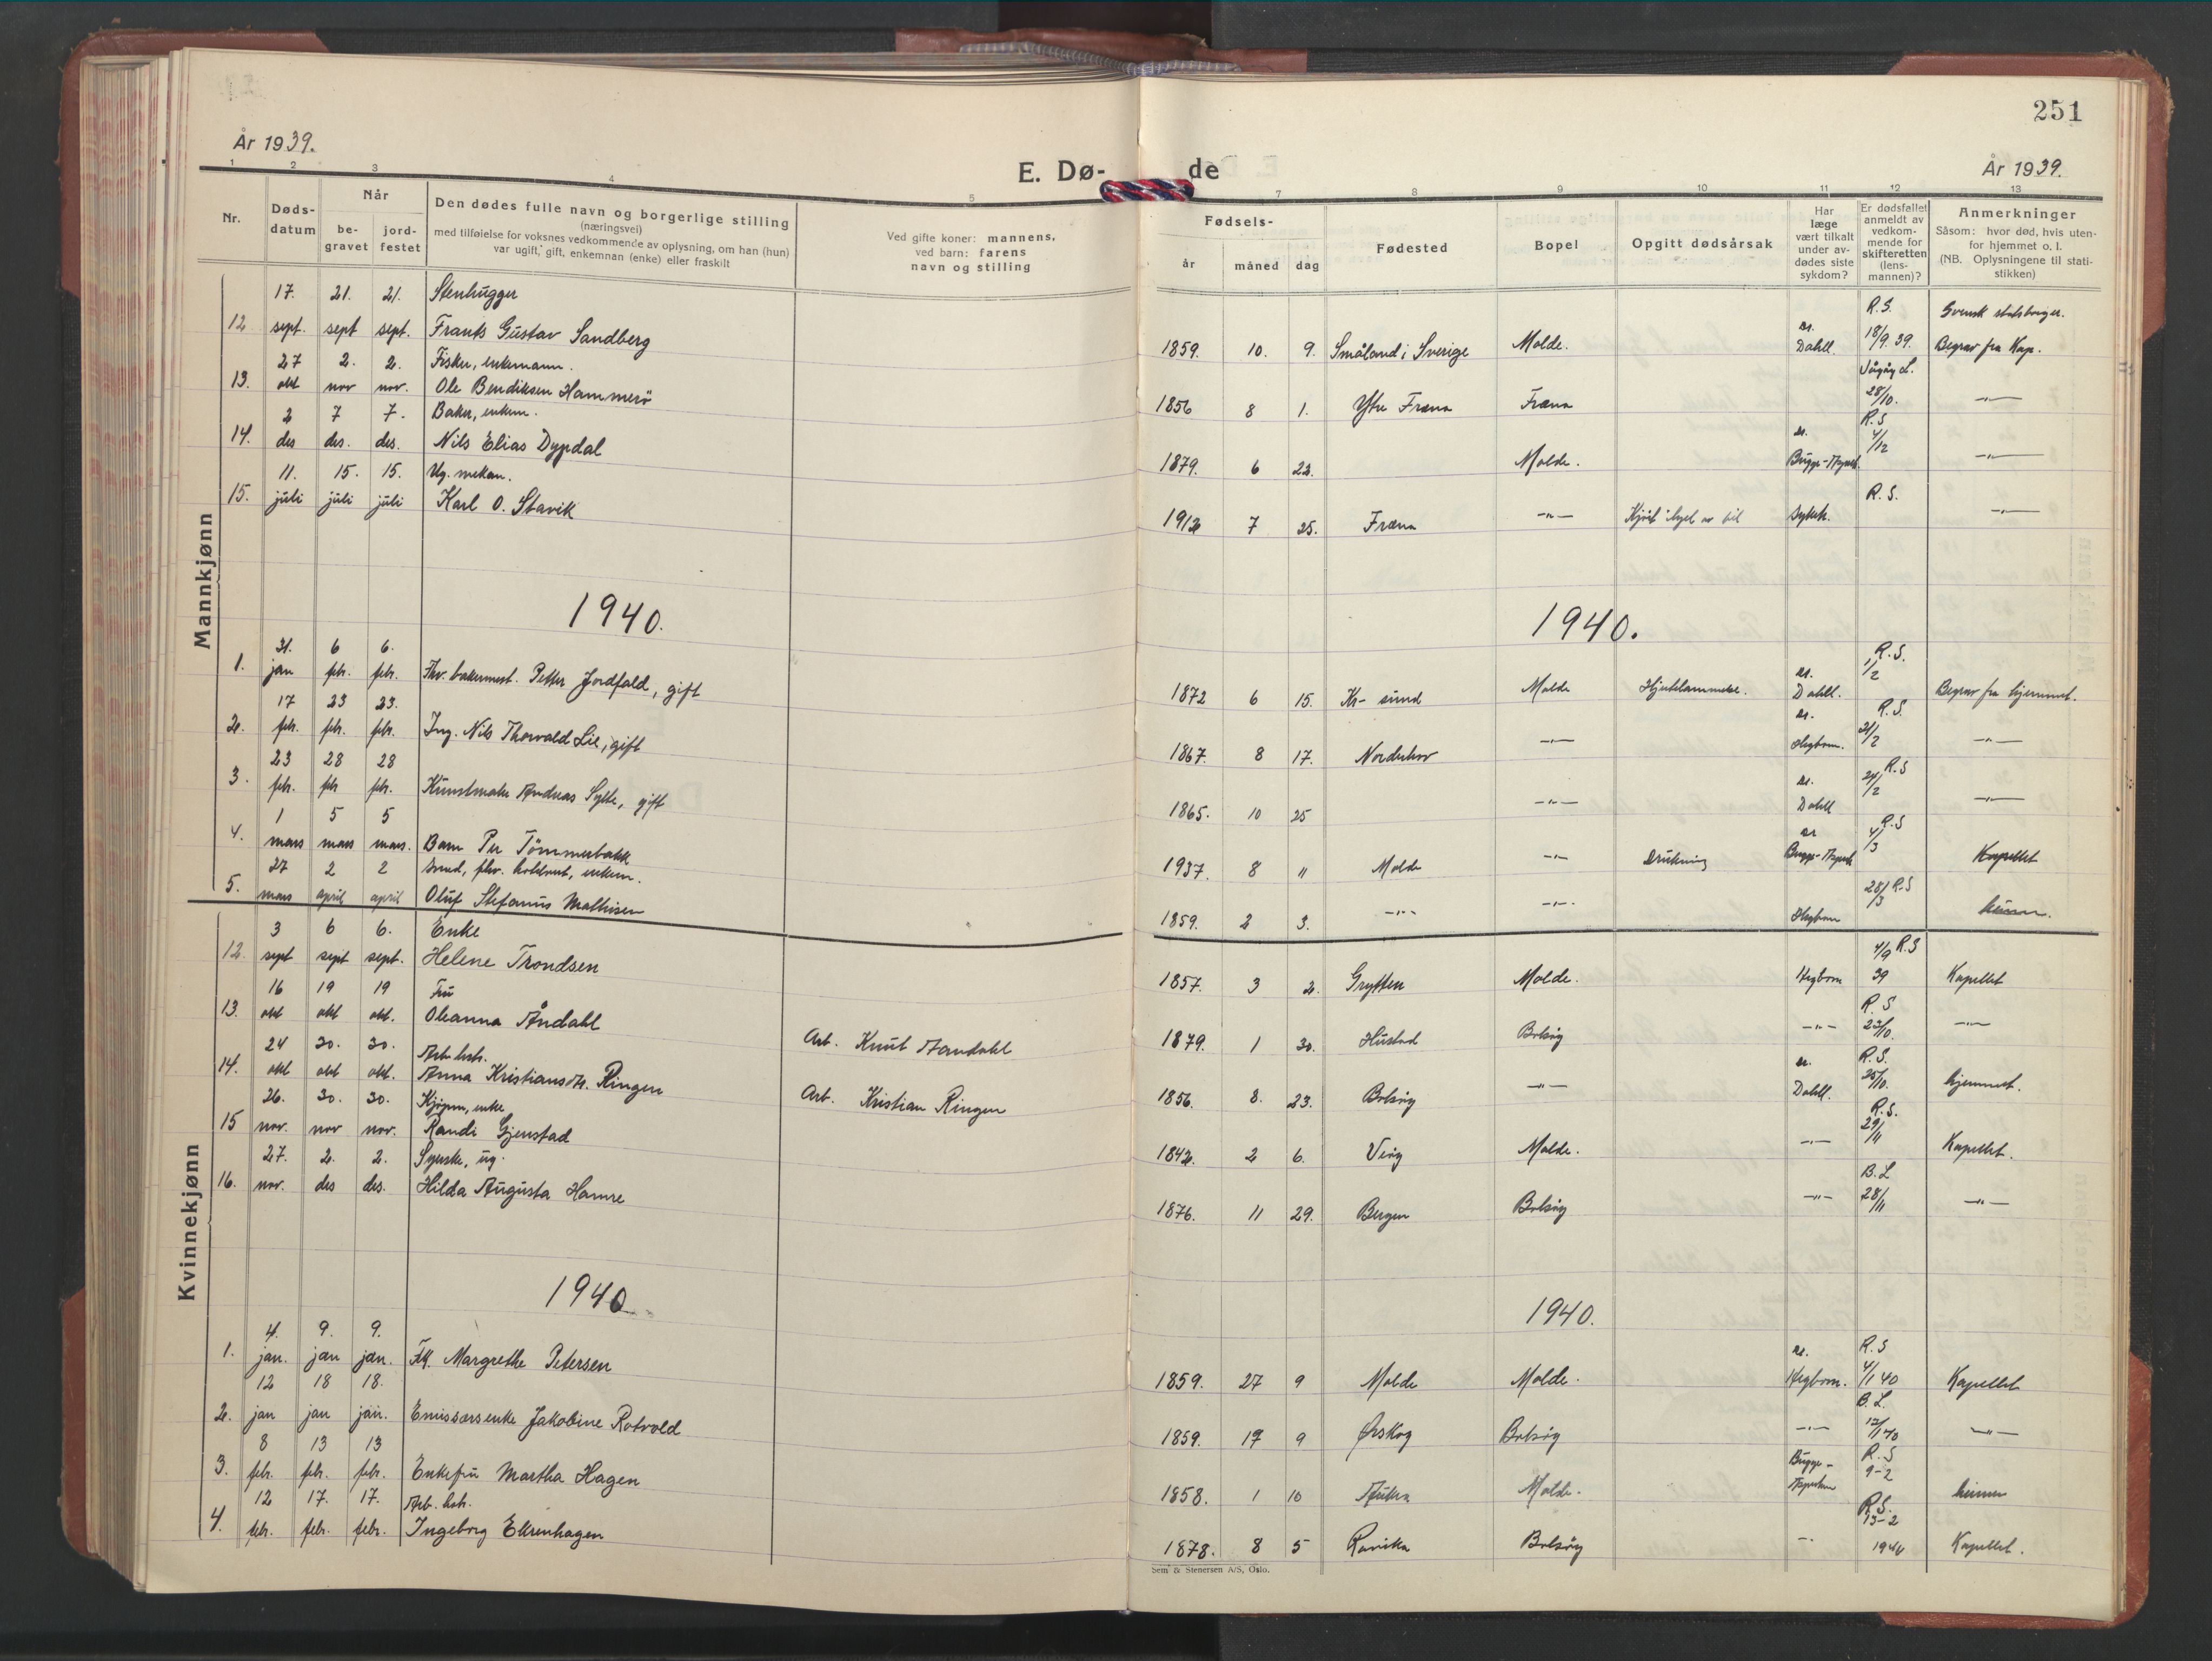 251
År 1939.
E. Dø-
de
År 1939.
1 2 3 4 5 7 8 9 10 11 12 13
Nr.
Døds-
datum
Når
be-
gravet
jord-
festet
Den dødes fulle navn og borgerlige stilling
(næringsvei)
med tilføielse for voksnes vedkommende av oplysning, om han (hun)
var ugift, gift, enkemnan (enke) eller fraskilt
Ved gifte koner: mannens,
ved barn: farens
navn og stilling
Fødsels-
år måned dag
Fødested
Bopel
Opgitt dødsårsak
Har
læge
vært tilkalt
under av-
dødes siste
sykdom?
Er dødsfallet
anmeldt av
vedkom-
mende for
skifteretten
(lens-
mannen)?
Anmerkninger
Såsom: hvor død, hvis uten-
for hjemmet o. l.
(NB. Oplysningene til stati-
stikken)
Mannkjønn
17. 21. 21. Stenhugger R.S. Svensk statsborger.
12 sept. sept sept. Frants Gustav Sandberg 1859. 10. 9. Småland i Sverige Molde. Dr. Dahll. 18/9. 39. Begrav fra Kap.
27 2. 2. Fisker, enkemann.
13. okt nov nov. Ole Bendiksen Hammerö 1856 8 1. Ytre Fræna Fræna 28/10. -"-
2 7 7. Baker, enkem. R.S
14. des des. des. Nils Elias Dypdal 1879. 6 22. Molde. dr. Bugge- 4/12 -"-
11. 15. 15. Ug. mekan. R.S.
15. juli juli juli Karl O. Stavik 1912 7 25. Fræna -"- Kjört ihjel av bil sykeh. -"-
1940.
1940.
31. 6 6. R.S.
1. jan feb. feb. Fhv. bakermest. Petter Jordfald, gift 1872 6 15. Kr-sund Molde Hjertelammelse. dr. Dahll. 1/2 Begrav fra hjemmet.
17 23 23. R.S.
2. feb. feb. feb. Ing. Nils Thorvald Lie, gift 1867. 8 17. Norderhov -"- dr. Hegbom. 21/2 -"-
23 28 28 R.S
3. feb. feb feb. Kunstmaler Andreas Sylte, gift 1865. 10 25 -"- dr. Dahll 24/2 -"-
1 5 5 R.S
4. mars mars mars. Barn Per Tömmerbakk 1937. 8 11 Molde -"- Drukning dr Bugge- 4/3 Kapellet
27 2 2 enkem.
5. mars april april Oluf Stefanus Mathisen 1859. 2 3. -"- -"- Hegbom 28/3 R.S
Kvinnekjønn
3 6 6. Enke 4/9 R.S
12. sept sept sept. Helene Trondsen 1857. 3 2. Grytten Molde. Hegbom 39 Kapellet
16 19 19 Fru R.S.
13. okt okt okt. Oleanna Åndahl Arb. Knut Aandahl 1879. 1 30. Hustad Bolsöy -"- 23/10. -"-
24 30. 30. Arb.hstr. R.S.
14. okt okt okt. Anna Kristiansdtr. Ringen Arb. Kristian Ringen 1856. 8. 23. Bolsöy -"- dr. Dahll. 25/10. hjemmet.
26. 30. 30. enke R.S.
15 nov. nov nov. Randi Gjenstad 1842. 2 6. Veöy Molde. -"- 29/11 Kapellet.
27. 2. 2. Syerske, ug. B.L
16. nov. des des. Hilda Augusta Hamre 1876. 11 29. Bergen Bolsöy -"- 28/11 -"-
1940
1940.
4. 9. 9. R.S
1. jan. jan jan. Frk. Margrethe Petersen 1859. 27 9 Molde Molde. dr. Hegbom. 4/1 40 Kapellet
12 18 18. B.L.
2. jan jan jan. Emissærsenke Jakobine Rotvold 1859. 17 9 Ørskog Bolsöy -"- 12/1 40 -"-
8 13 13 R.S
3. feb. feb. feb. Enkefru Martha Hagen 1858. 1 10 Aukra Molde. Bugge- 9-2
12 17. 17. Arb. hstr. R.S.
4. feb. feb. feb. Ingeborg Ekrenhagen 1878. 8 5 Rövika Bolsöy -"- 13-2 1940 Kapellet.
Sem & Stenersen A/S, Oslo.